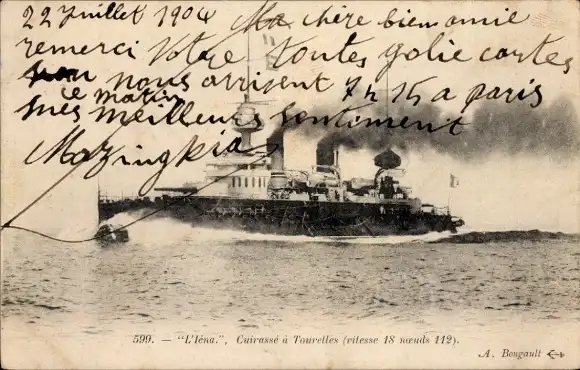 22 Juillet 1904 Ma chère bien amie
remerci Votre toutes jolie cartes
nous arrisent 7h 15 a paris
ce matin
mes meilleurs sentiment
599. — "L'Iéna.", Cuirassé à Tourelles (vitesse 18 nœuds 112).
A. Bougault